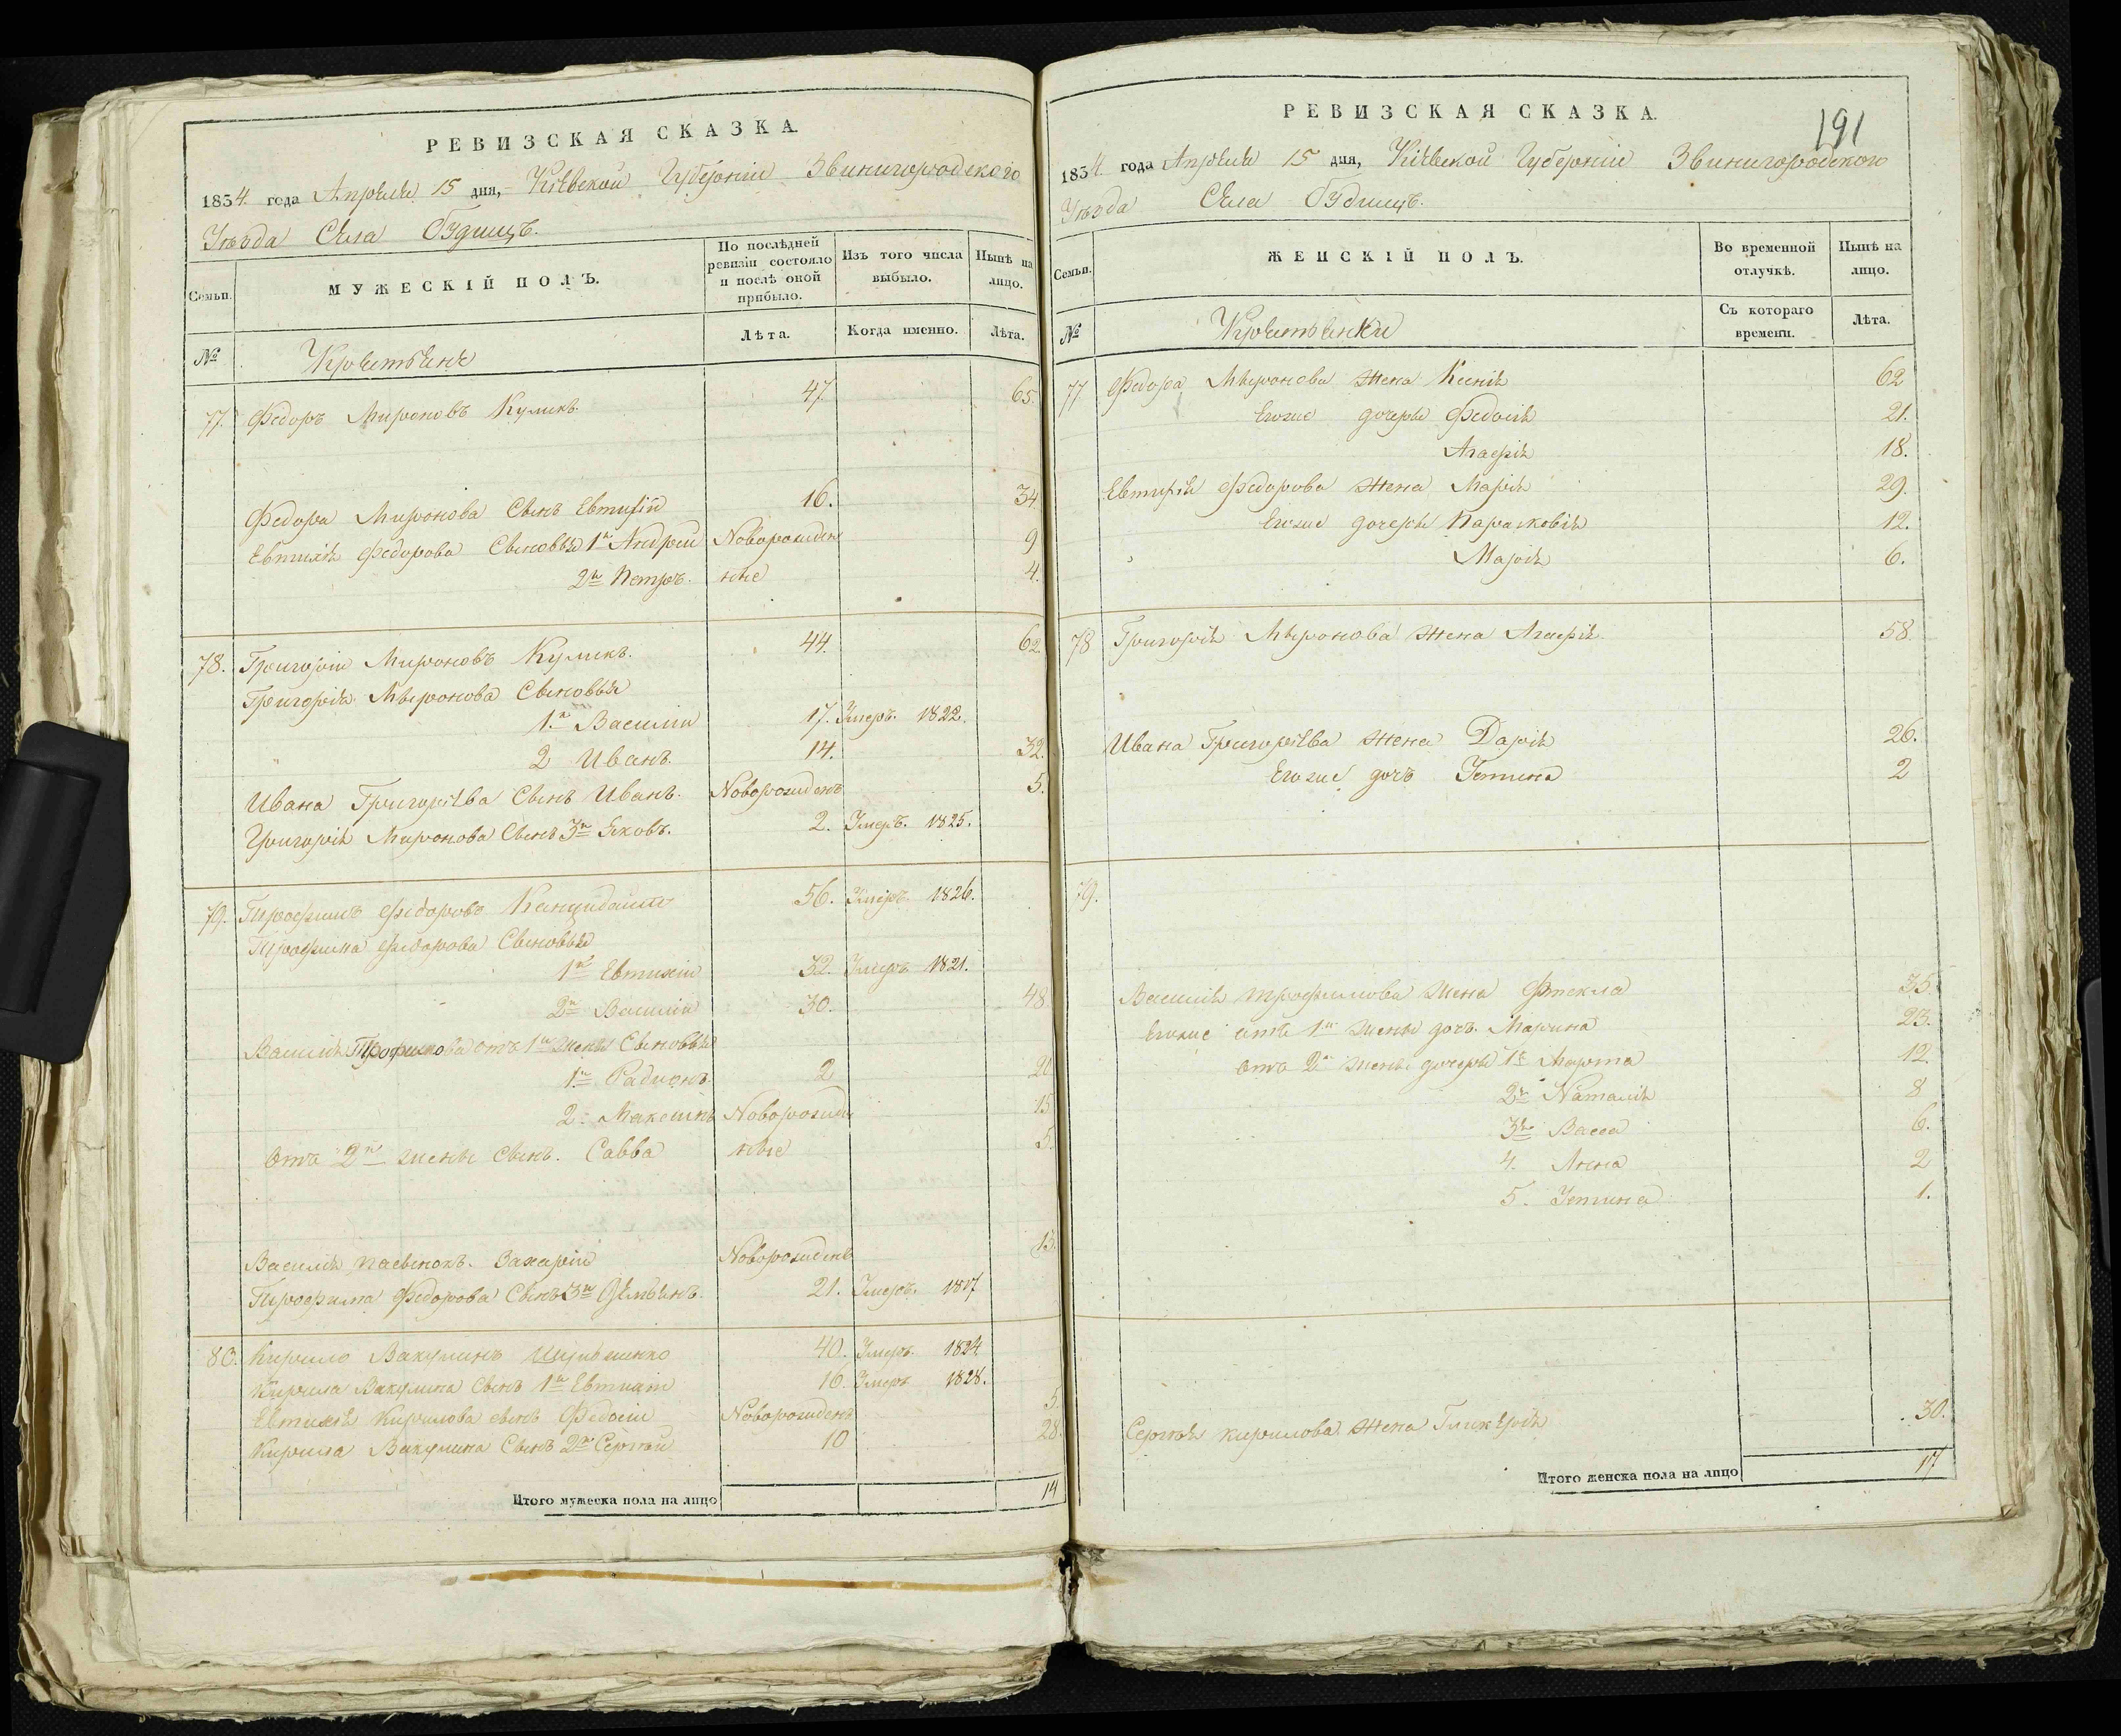 РЕВИЗСКАЯ СКАЗКА.
1834. года Апреля 15 дня, Кіевской Губерніи Звинигородского
Уезда Села Будищъ.
Семьи.
МУЖЕСКІЙ ПОЛЪ.
По послѣдней ревизіи состояло и послѣ оной прибыло.
Изъ того числа выбыло.
Нынѣ на лицо.
№
Крестьяне
Лѣта.
Когда именно.
Лѣта.
77. Федоръ Мироновъ Куликъ. 47. 65.
Федора Миронова Сынъ Евтихій 16. 34
Евтихія Федорова Сыновья 1й Андрей Новорожден 9
2й Петръ. ные 4.
78. Григорій Мироновъ Куликъ. 44. 62.
Григорія Миронова Сыновья
1й Василій 17. Умеръ. 1822.
2 Иванъ 14. 32.
Ивана Григорьева Сынъ Иванъ. Новорожденъ 5.
Григорія Миронова Сынъ 3й Яковъ. 2. Умеръ. 1825.
79. Трофимъ Федоровъ 56. Умеръ. 1826.
Трофима Федорова Сыновья
1й Евтихій 32. Умеръ 1821.
2й Василій 30. 48.
Василія Трофимова отъ 1й жены Сыновья
1й Радионъ. 2 20
2. Максимъ Новорожден 15
Отъ 2й жены Сынъ. Савва ные 5.
Василія пасынокъ. Захарій Новорожденъ 13.
Трофима Федорова Сынъ 3й Демьянъ. 21. Умеръ. 1817
80. Кирило Вакулинъ 40. Умеръ. 1824.
Кирила Вакулина Сынъ 1й Евтихій 16. Умеръ 1828.
Евтихія Кирилова сынъ Федосій Новорожденъ 5.
Кирила Вакулина Сынъ 2й Сергѣй 10 28.
Итого мужеска пола на лицо 14
РЕВИЗСКАЯ СКАЗКА.
191
1834. года Апреля 15 дня, Кіевской Губерніи Звинигородского
Уезда Села Будищъ.
Семьи.
ЖЕНСКІЙ ПОЛЪ.
Во временной отлучкѣ.
Нынѣ на лицо.
№
Крестьянки
Съ котораго времени.
Лѣта.
77 Федора Миронова жена Ксенія 62
Егоже дочери Федосія 21.
Агафія 18.
Евтихія Федорова жена Марія 29.
Егоже дочери Парасковія 12.
Марія 6.
78 Григорія Миронова жена Агафія. 58.
Ивана Григорьева жена Дарія 26.
Егоже дочь Устина 2
79.
Василія Трофимова жена Фтекла 35.
Егоже отъ 1й жены дочь. Марина 23.
отъ 2й жены дочери 1я Марта 12
2я Наталія 8
3я Васса 6.
4. Анна 2
5. Устина 1.
Сергѣя Кирилова жена Гликерія 30.
Итого женска пола на лицо 17